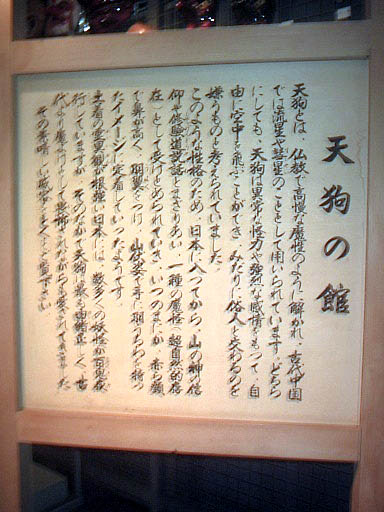 天狗の館
天狗とは、仏教で高慢な魔性のように解かれ、古代中国
では流星や彗星のこととして用いられています。どちら
にしても、天狗は異常な怪力や強烈な感情をもって、自
由に空中を飛ぶことができ、みだりに俗人と交わるのを
嫌うものと考えられていました。
このような性格のため、日本に入ってから、山の神の信
仰や修験道説話とまざりあい、一種の魔性（超自然的存
在）として受けとめられていき、いつのまにか、赤ら顔
で鼻が高く、羽翼をつけ、山伏姿で手に羽うちわを持っ
たイメージに定着していったようです。
土着の霊異観が根強い日本には、数多くの妖性が百鬼夜
行していますが、そのなかで天狗は最も由緒正しく、古
代より魔よけとして畏怖されながらも愛されて来ました。
その素晴しい